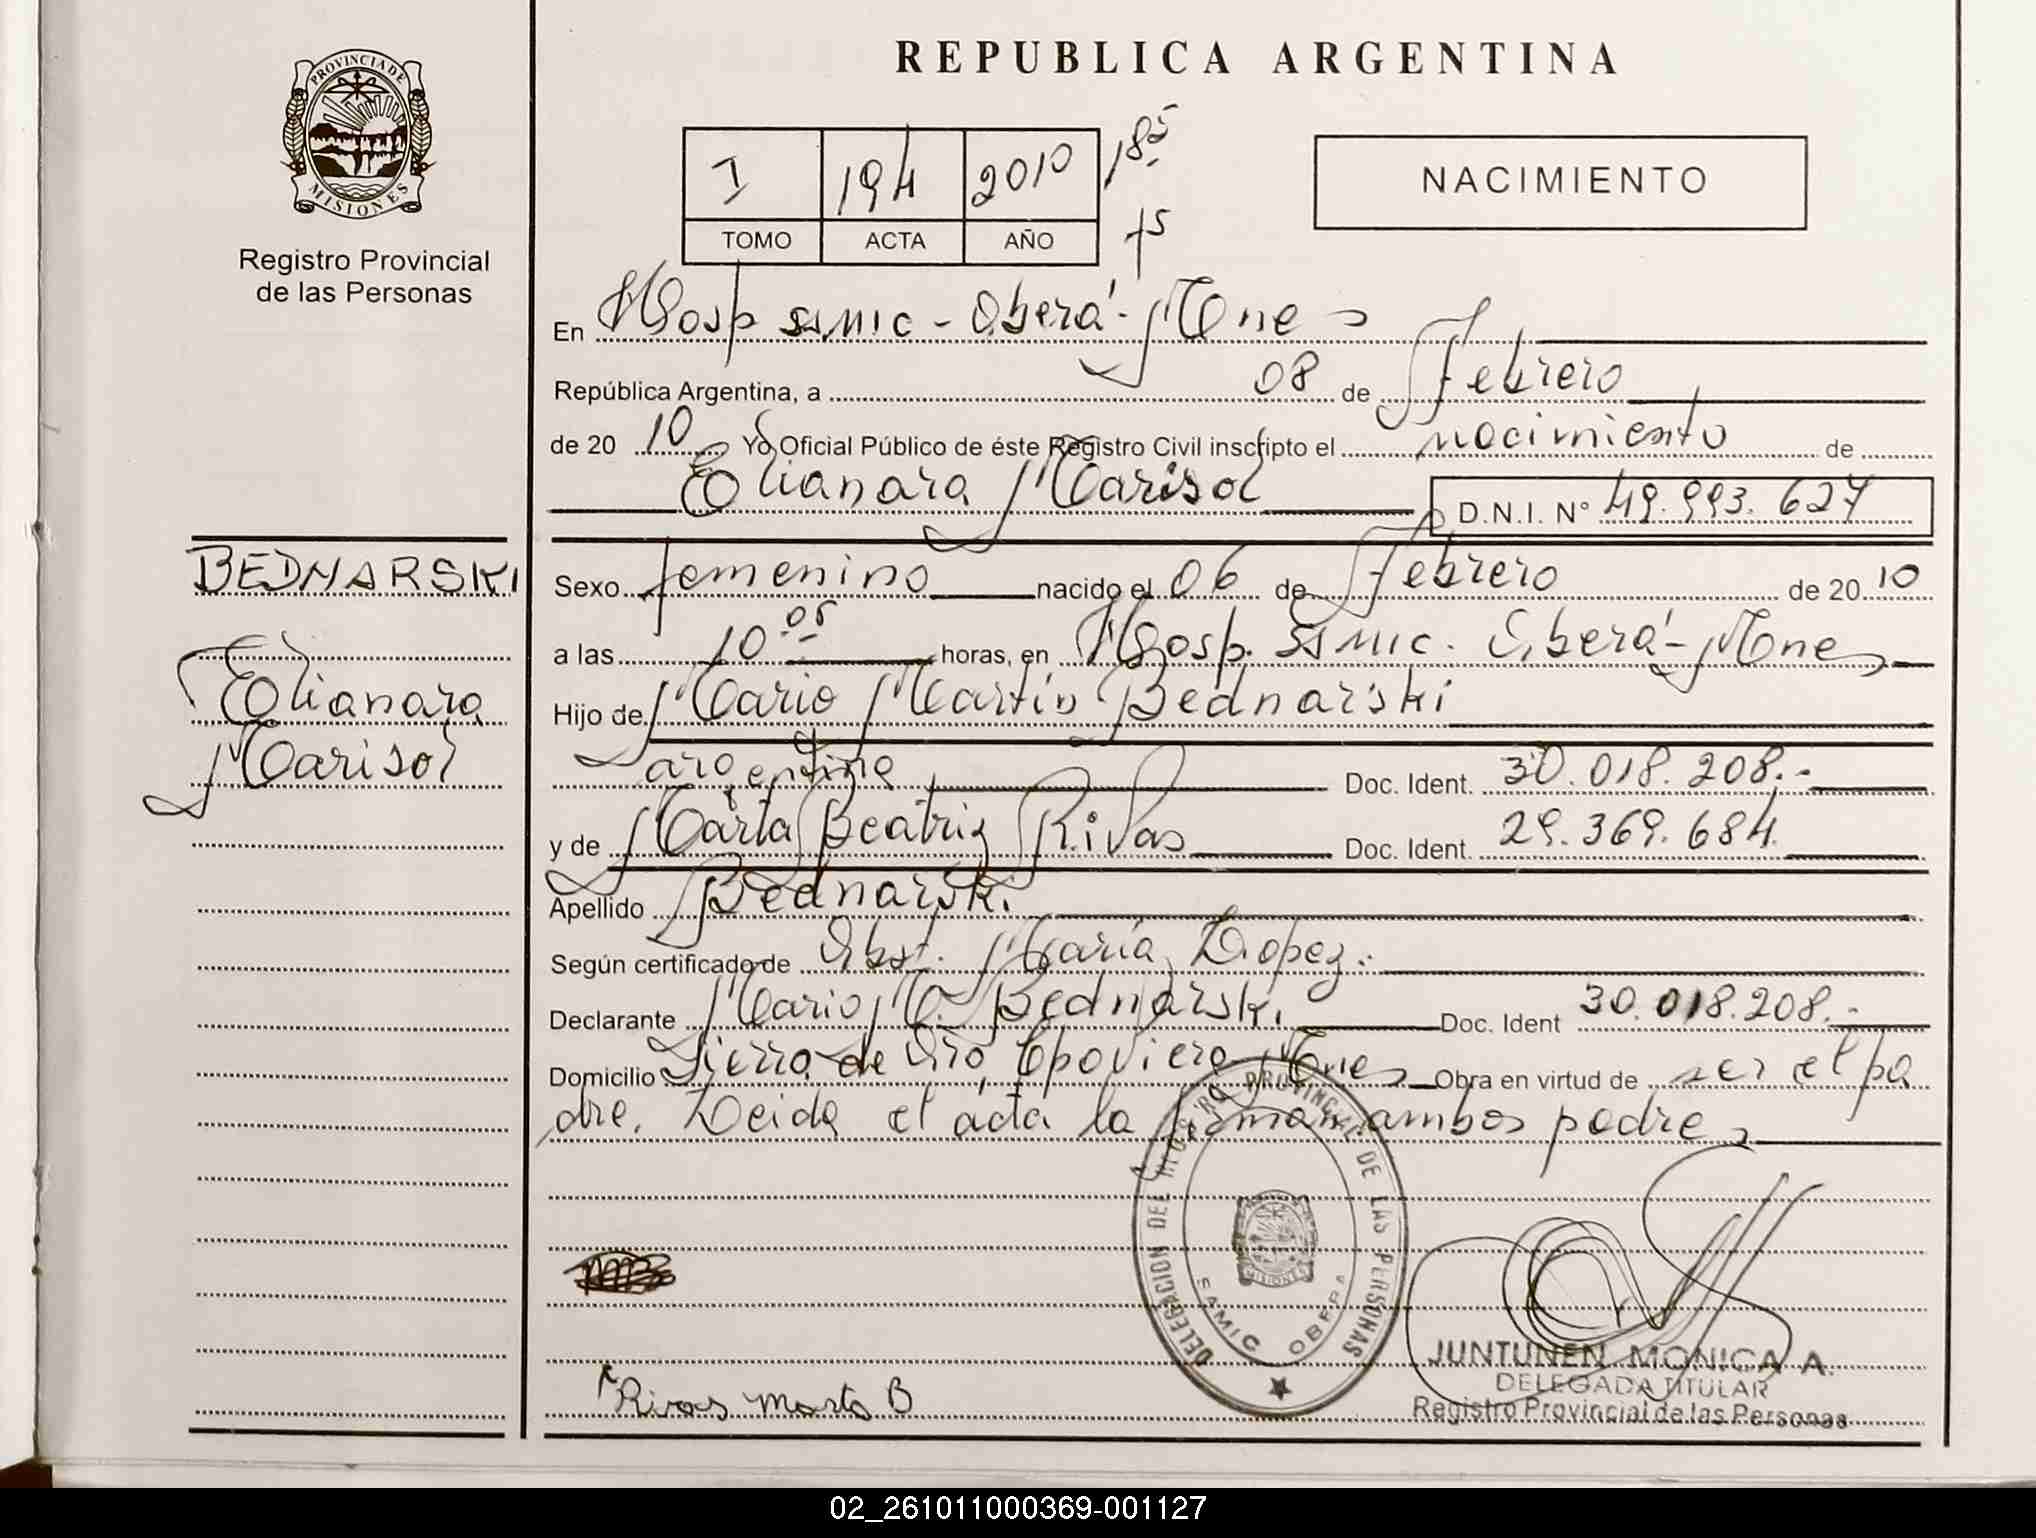 REPUBLICA ARGENTINA
PROVINCIA DE
MISIONES
Registro Provincial
de las Personas
I 194 2010 185
TOMO ACTA AÑO
NACIMIENTO
En Hosp SAMIC - Oberá - Mnes
República Argentina, a 08 de Febrero
de 2010 Yo Oficial Público de éste Registro Civil inscripto el nacimiento de
Elianara Marisol D.N.I. Nº 49.993.627
BEDNARSKI
Elianara
Marisol
Sexo femenino nacido el 06 de Febrero de 2010
a las 10 05 horas, en Hosp. SAMIC. Oberá - Mnes
Hijo de Mario Martín Bednarski
argentina Doc. Ident. 30.018.208.-
y de Marta Beatriz Rivas Doc. Ident. 29.369.684.
Apellido Bednarski
Según certificado de Obst. María Lopez.-
Declarante Mario M. Bednarski Doc. Ident 30.018.208.-
Domicilio Sierra de Oro, Mnes Obra en virtud de ser el pa
dre. Leida el acta la firman ambos padres
DELEGACION DEL REGISTRO PROVINCIAL DE LAS PERSONAS
SAMIC OBERA
MISIONES
JUNTUNEN MONICA A.
DELEGADA TITULAR
Registro Provincial de las Personas
Rivas Marta B
02_261011000369-001127